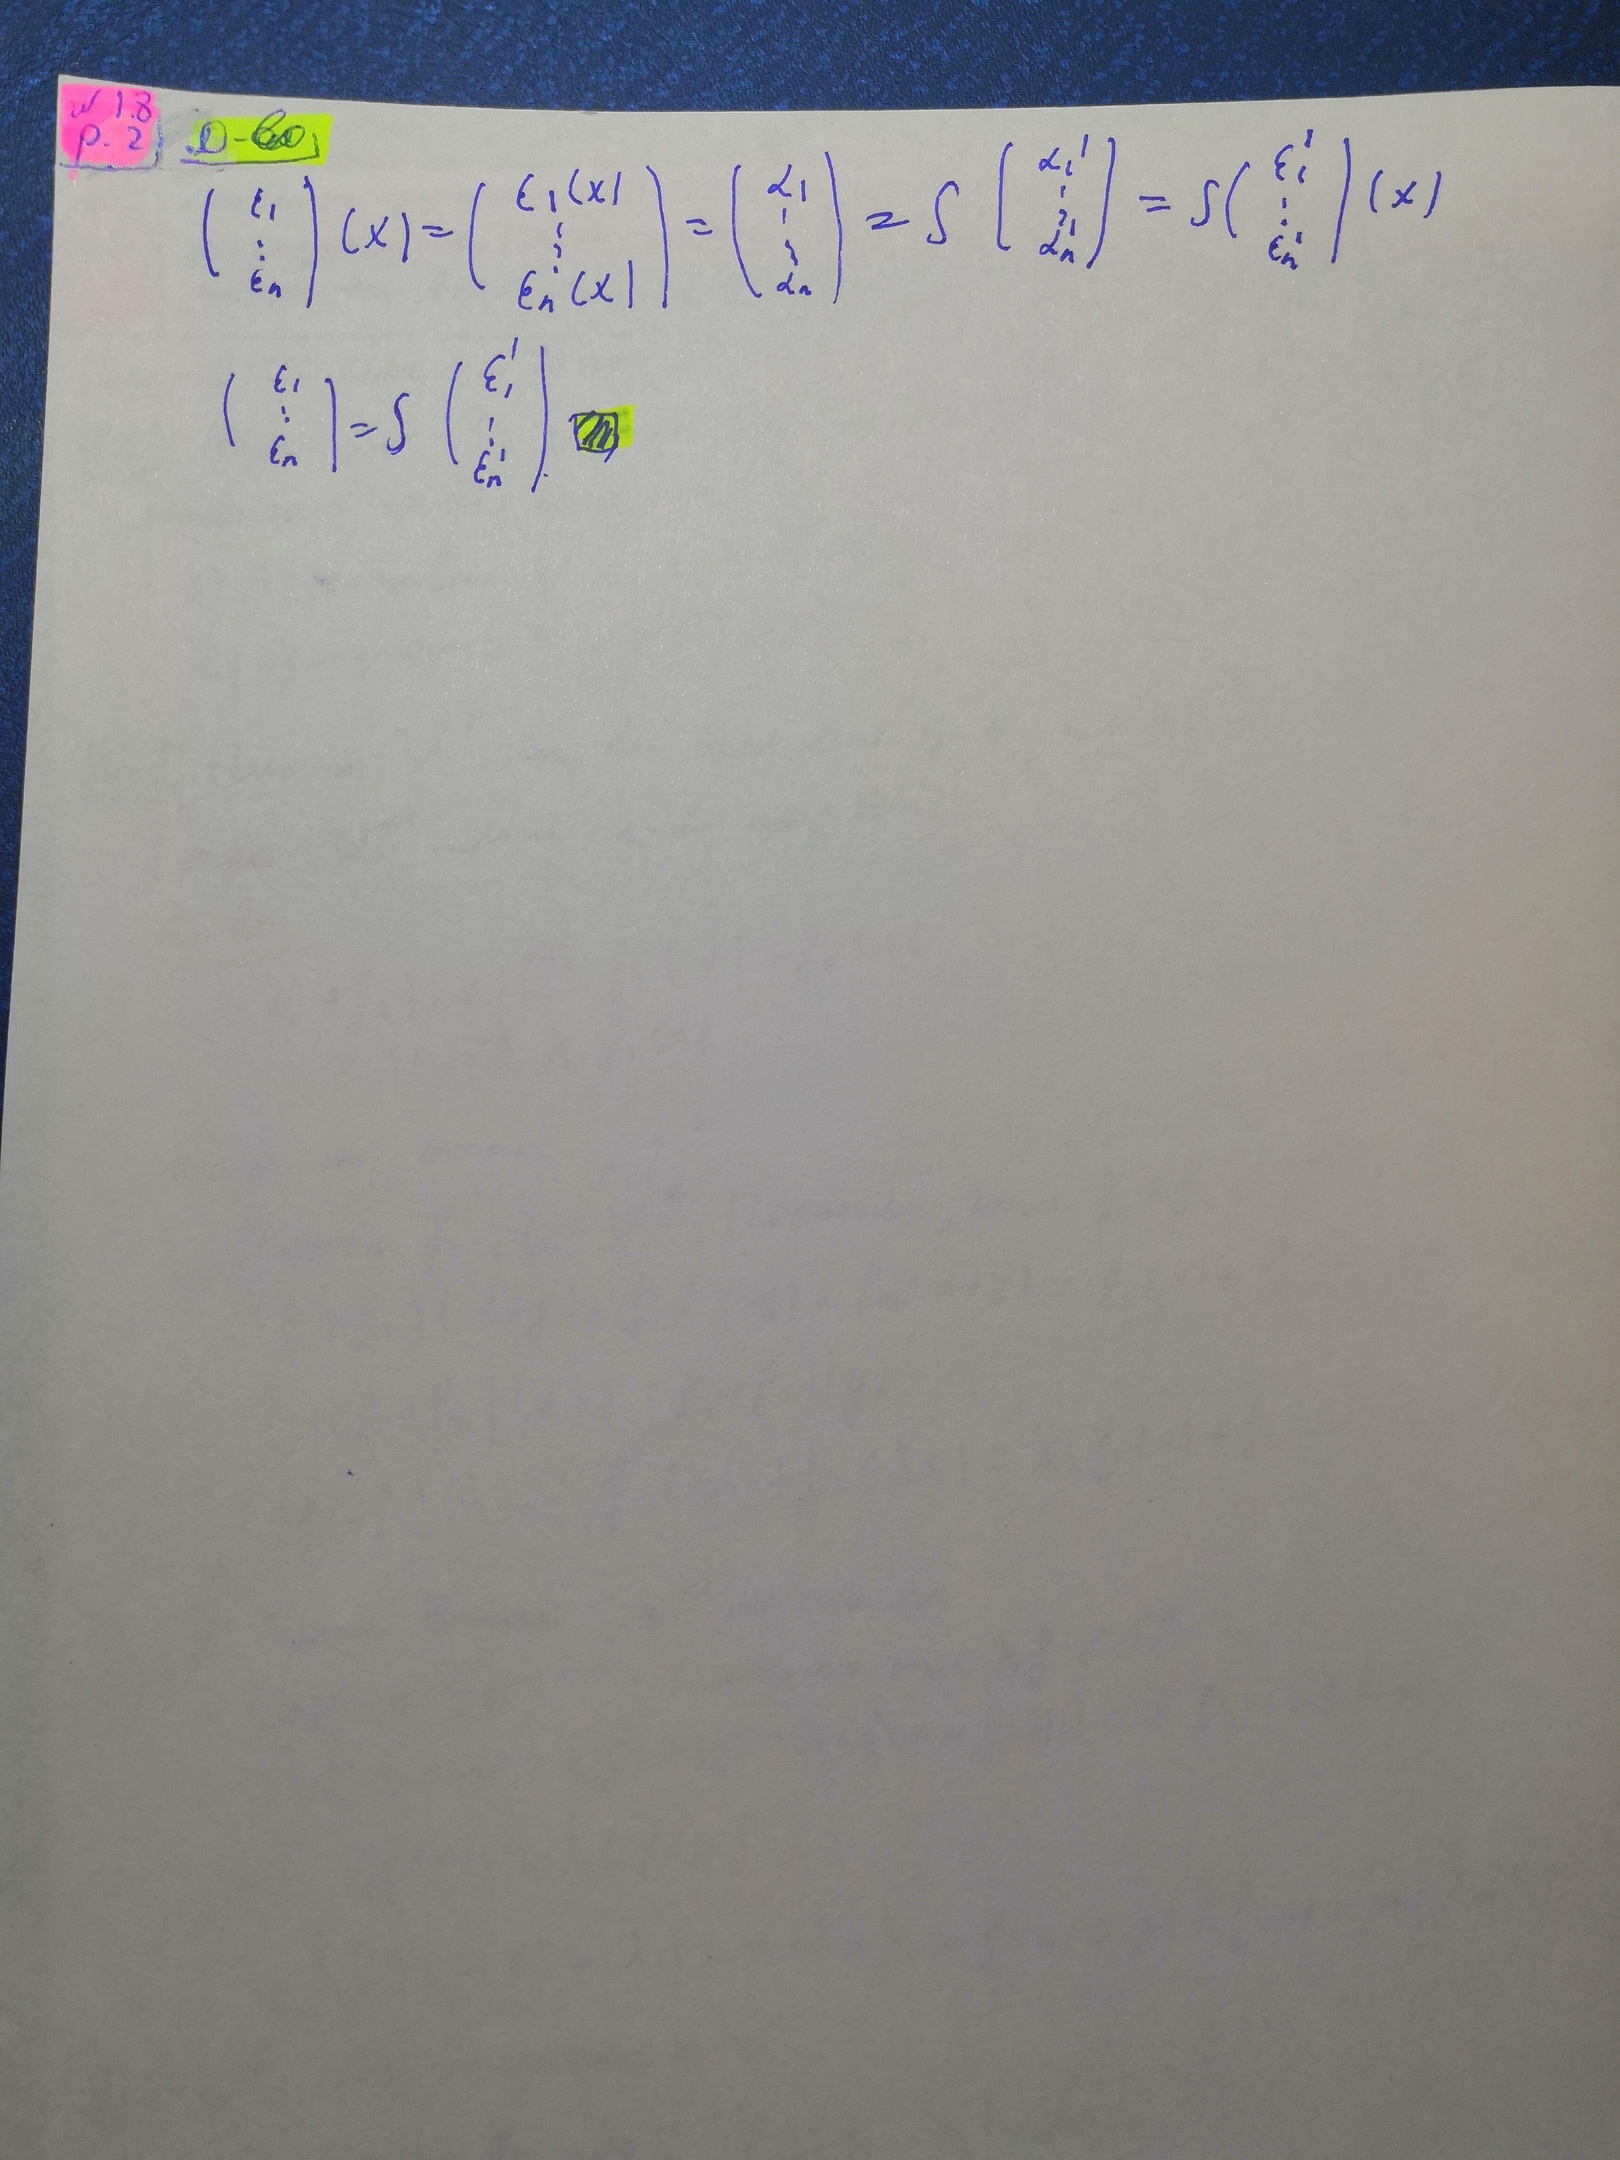 w 1.8
p. 2
D-во
(ε₁ ⋮ εₙ)(x) = (ε₁(x) ⋮ εₙ(x)) = (α₁ ⋮ αₙ) = S (α₁' ⋮ αₙ') = S (ε₁' ⋮ εₙ')(x)
(ε₁ ⋮ εₙ) = S (ε₁' ⋮ εₙ')